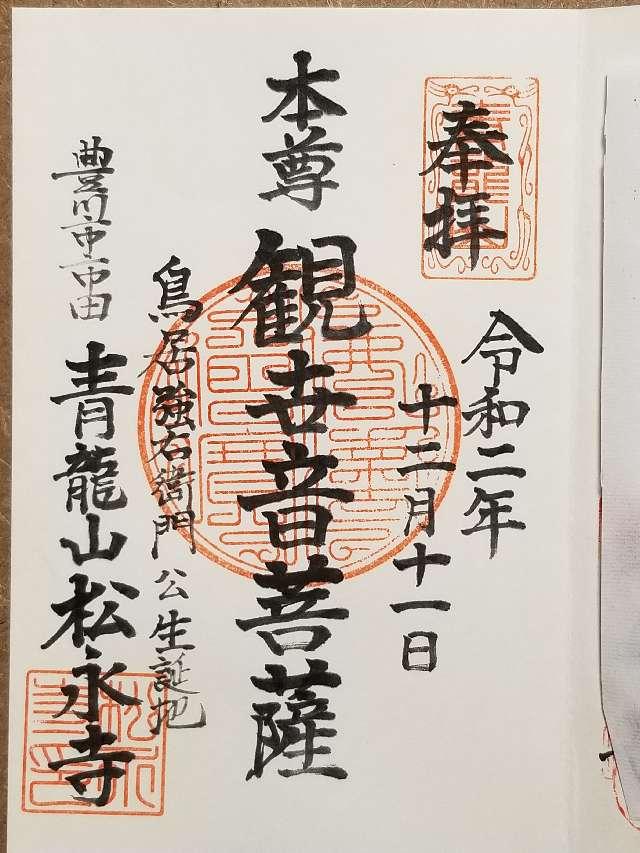 奉拝
令和二年
十二月十一日
本尊
観世音菩薩
鳥居強右衛門公生誕地
豊川市市田
青龍山松永寺